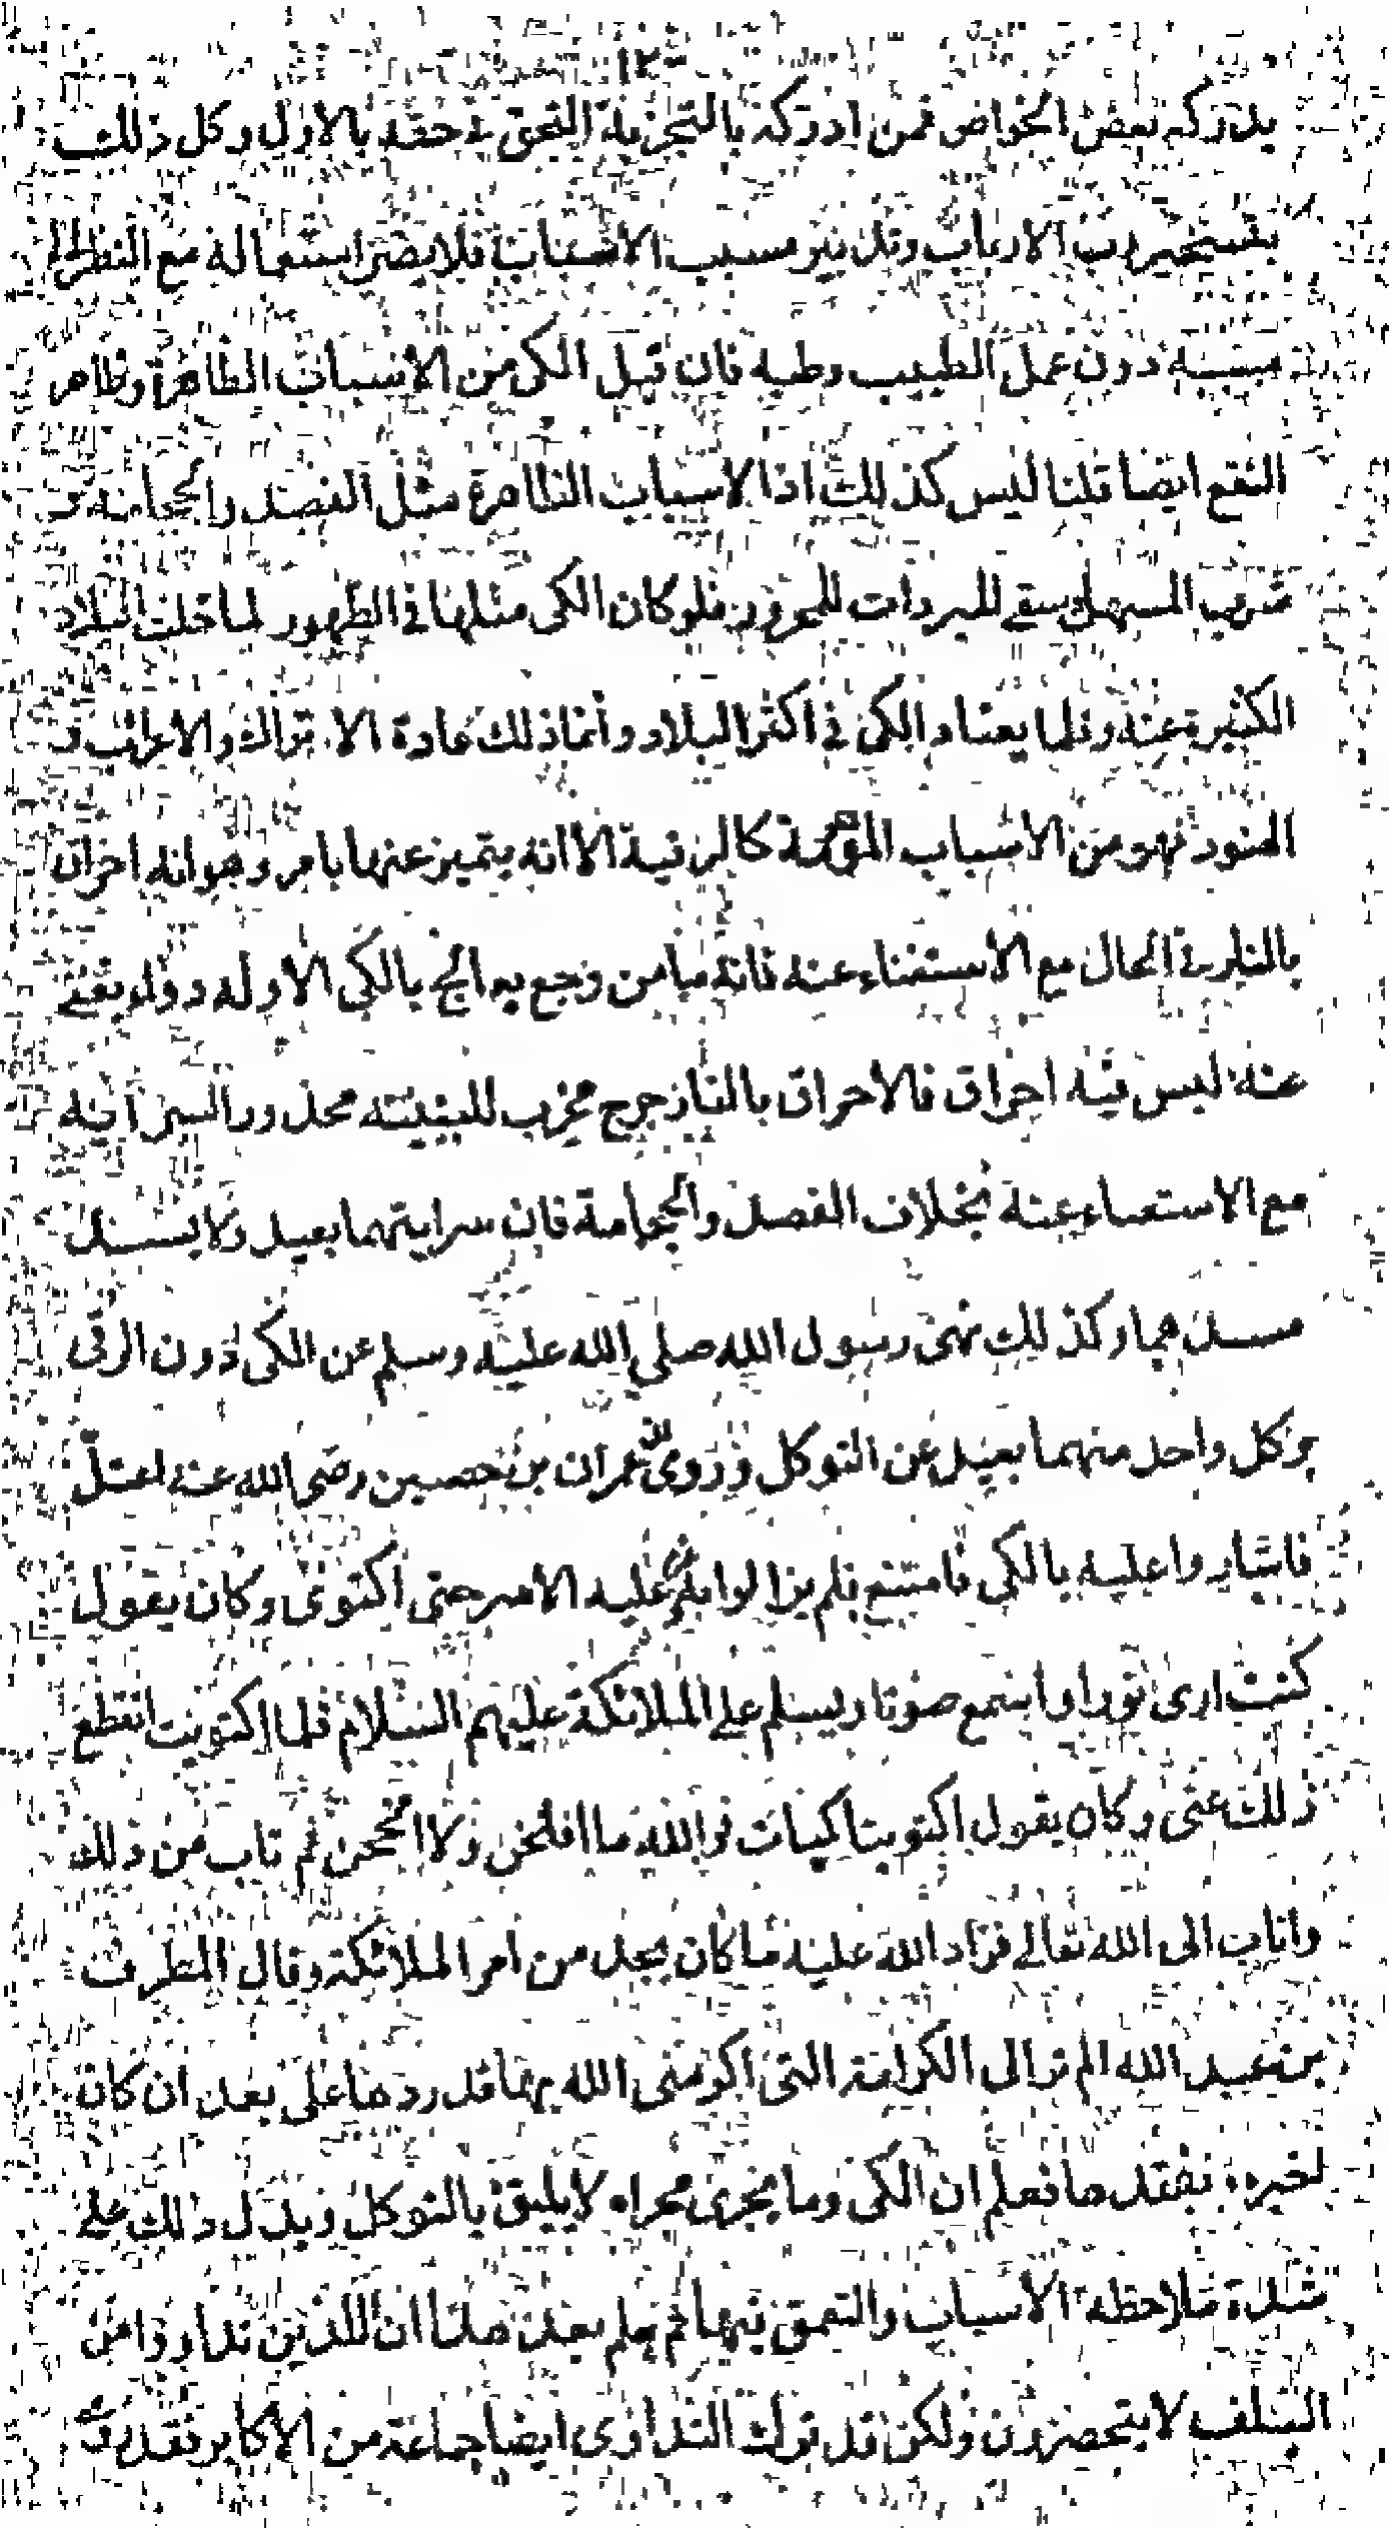 يدركه بعض الخواص فمن ادركه بالتجربة التحق في حقه بالاول وكل ذلك
بتسخير رب الارباب وتدبير مسبب الاسباب فلا يضر استعماله مع النظر الى
مسببه دون عمل الطبيب وطبه فان قيل الكى من الاسباب الظاهرة وظاهر
النفع ايضا قلنا ليس كذلك اذا الاسباب الظاهرة مثل الفصد والحجامة و
شرب المسهل وسقى المبردات للمحرور فلو كان الكى مثلها فى الظهور لما خلت البلاد
الكثيرة عنه وقلما يعتاد الكى فى اكثر البلاد وانما ذلك عادة الاتراك والاعراب و
الهنود فهو من الاسباب الموهمة كالرقية الا انه يتميز عنها بامر وهو انه احراق
بالنار فى الحال مع الاستغناء عنه فانه ما من وجع يعالج بالكى الا وله دواء يغنى
عنه ليس فيه احراق فالاحراق بالنار جرح مخرب للبنية محذور السراية
مع الاستغناء عنه بخلاف الفصد والحجامة فان سرايتهما بعيد ولا يسد
مسدهما وكذلك نهى رسول الله صلى الله عليه وسلم عن الكى دون الرقى
و كل واحد منهما بعيد عن التوكل وروى ان عمران بن حصين رضى الله عنه اعتل
فاشاروا عليه بالكى فامتنع فلم يزالوا به عليه الامر حتى اكتوى وكان يقول
كنت ارى نورا واسمع صوتا ويسلم على الملائكة عليهم السلام فلما اكتويت انقطع
ذلك عنى وكان يقول اكتوينا كيات فوالله ما افلحن ولا انجحن ثم تاب من ذلك
واناب الى الله تعالى فرد الله عليه ما كان يجد من امر الملائكة وقال المطرف
بن عبد الله الم تر الى الكرامة التى اكرمنى الله بها قد ردها على بعد ان كان
اخبره بفقدها فعلم ان الكى وما يجرى مجراه لا يليق بالتوكل ويدل ذلك على
شدة ملاحظة الاسباب والتعمق فيها ثم علم بعد هذا ان الذين تداووا من
السلف لا ينحصرون ولكن قد ترك التداوى ايضا جماعة من الاكابر فقد روى